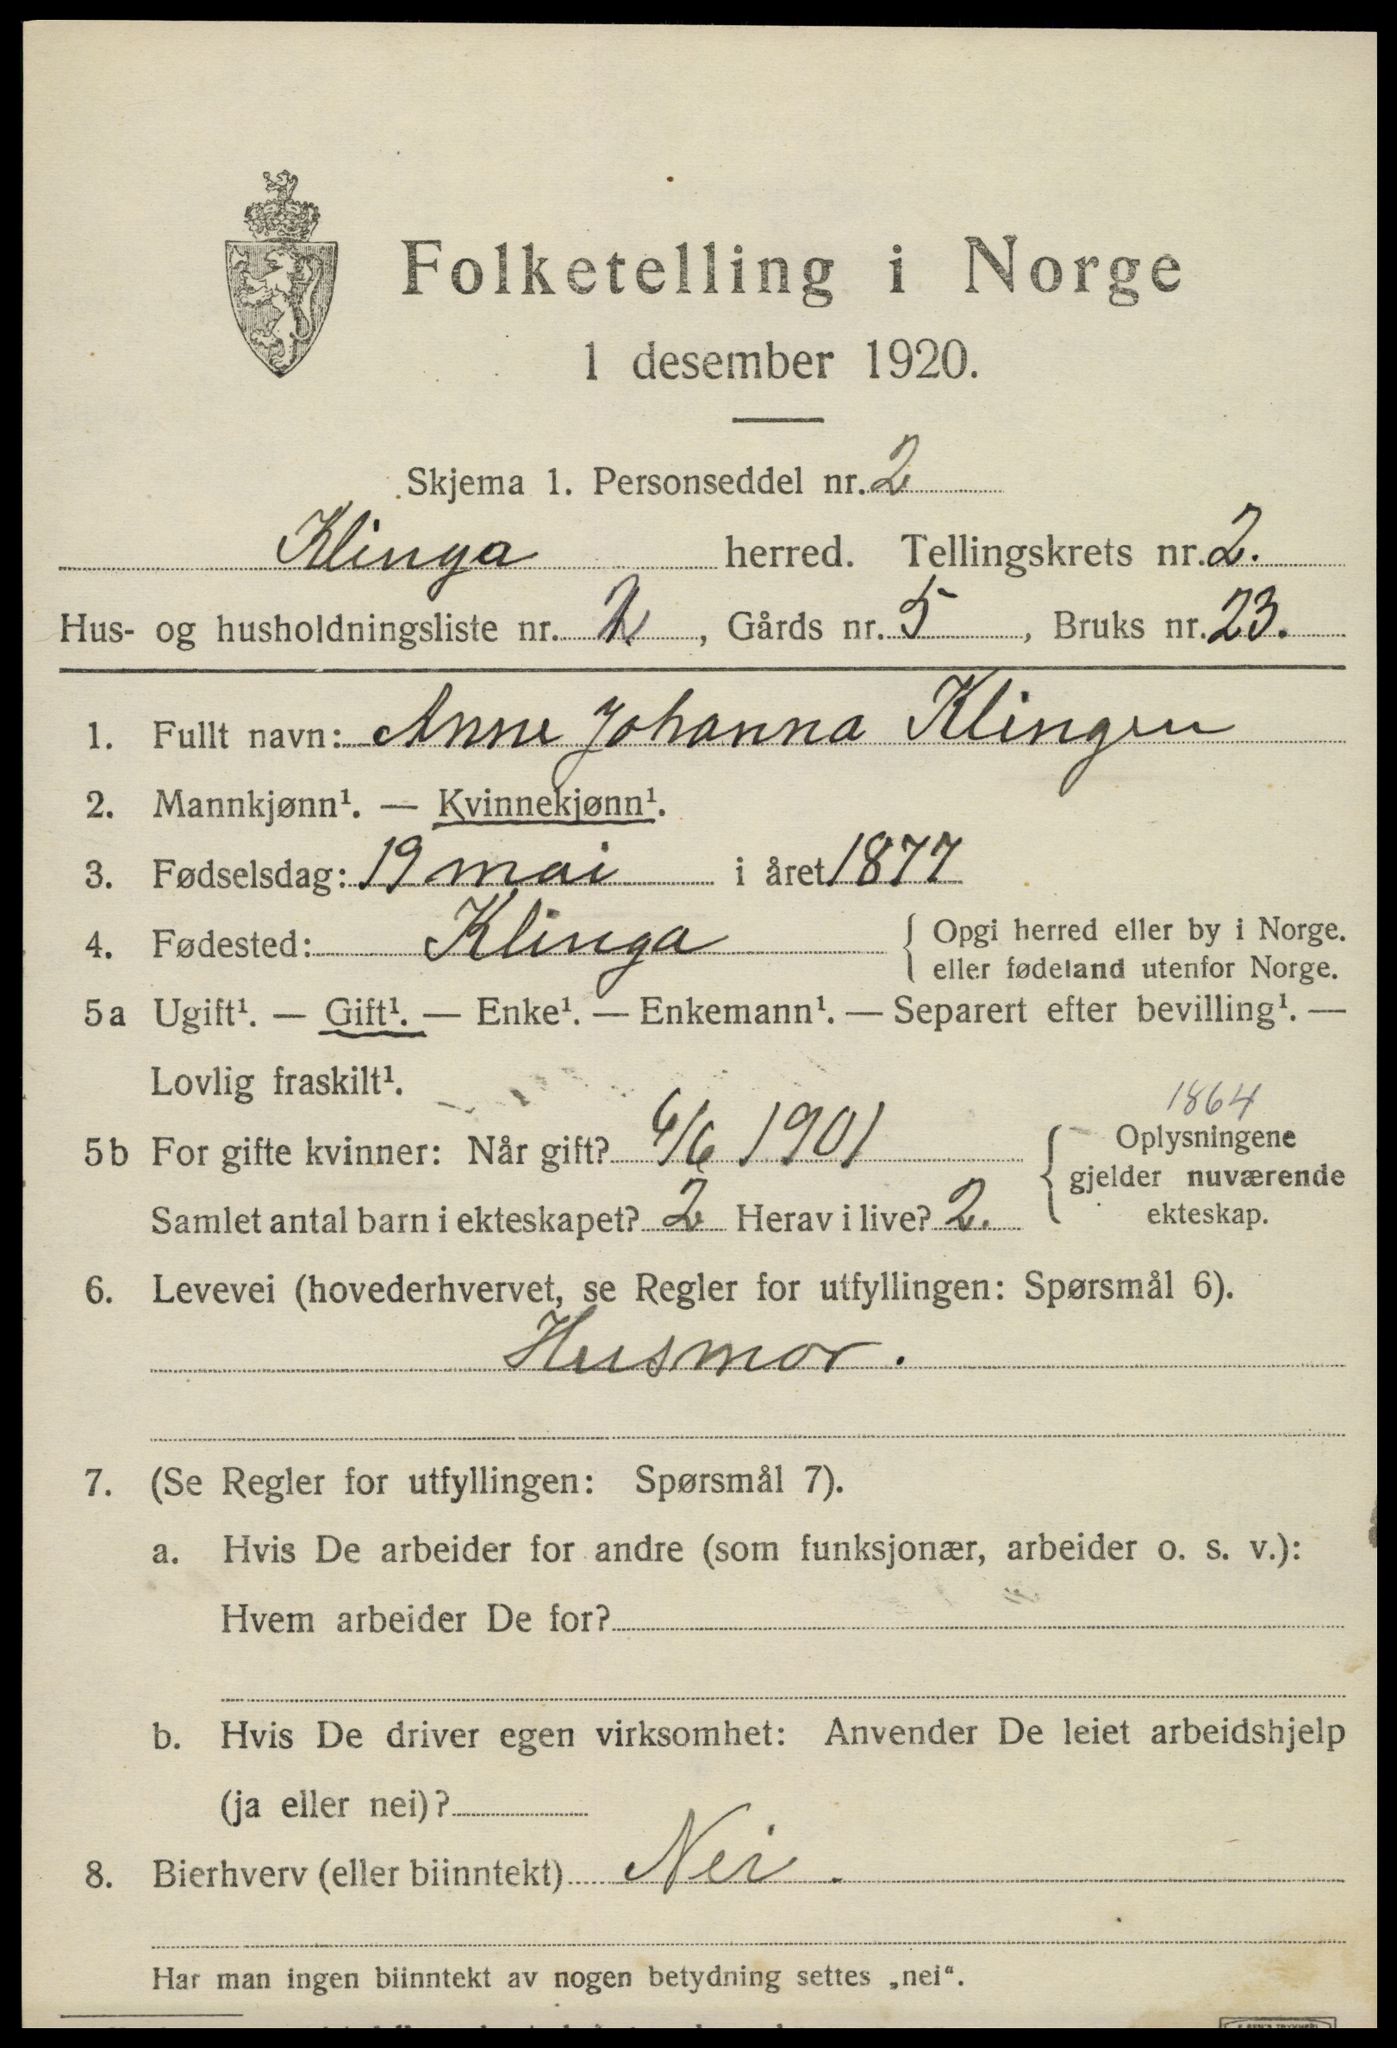 Folketelling i Norge
1 desember 1920.
Skjema 1. Personseddel nr. 2
Klinga herred. Tellingskrets nr. 2.
Hus- og husholdningsliste nr. 2, Gårds nr. 5, Bruks nr. 23.
1. Fullt navn: Anne Johanna Klingen
2. Mannkjønn¹. — Kvinnekjønn¹.
3. Fødselsdag: 19 mai i året 1877
4. Fødested: Klinga { Opgi herred eller by i Norge.
eller fødeland utenfor Norge.
5a Ugift¹. — Gift¹. — Enke¹. — Enkemann¹. — Separert efter bevilling¹. —
Lovlig fraskilt¹.
1864
5b For gifte kvinner: Når gift? 6/6 1901 { Oplysningene
gjelder nuværende
Samlet antal barn i ekteskapet? 2 Herav i live? 2. ekteskap.
6. Levevei (hovederhvervet, se Regler for utfyllingen: Spørsmål 6).
Husmor.
7. (Se Regler for utfyllingen: Spørsmål 7).
a. Hvis De arbeider for andre (som funksjonær, arbeider o. s. v.):
Hvem arbeider De for?
b. Hvis De driver egen virksomhet: Anvender De leiet arbeidshjelp
(ja eller nei)?
8. Bierhverv (eller biinntekt) Nei.
Har man ingen biinntekt av nogen betydning settes „nei“.